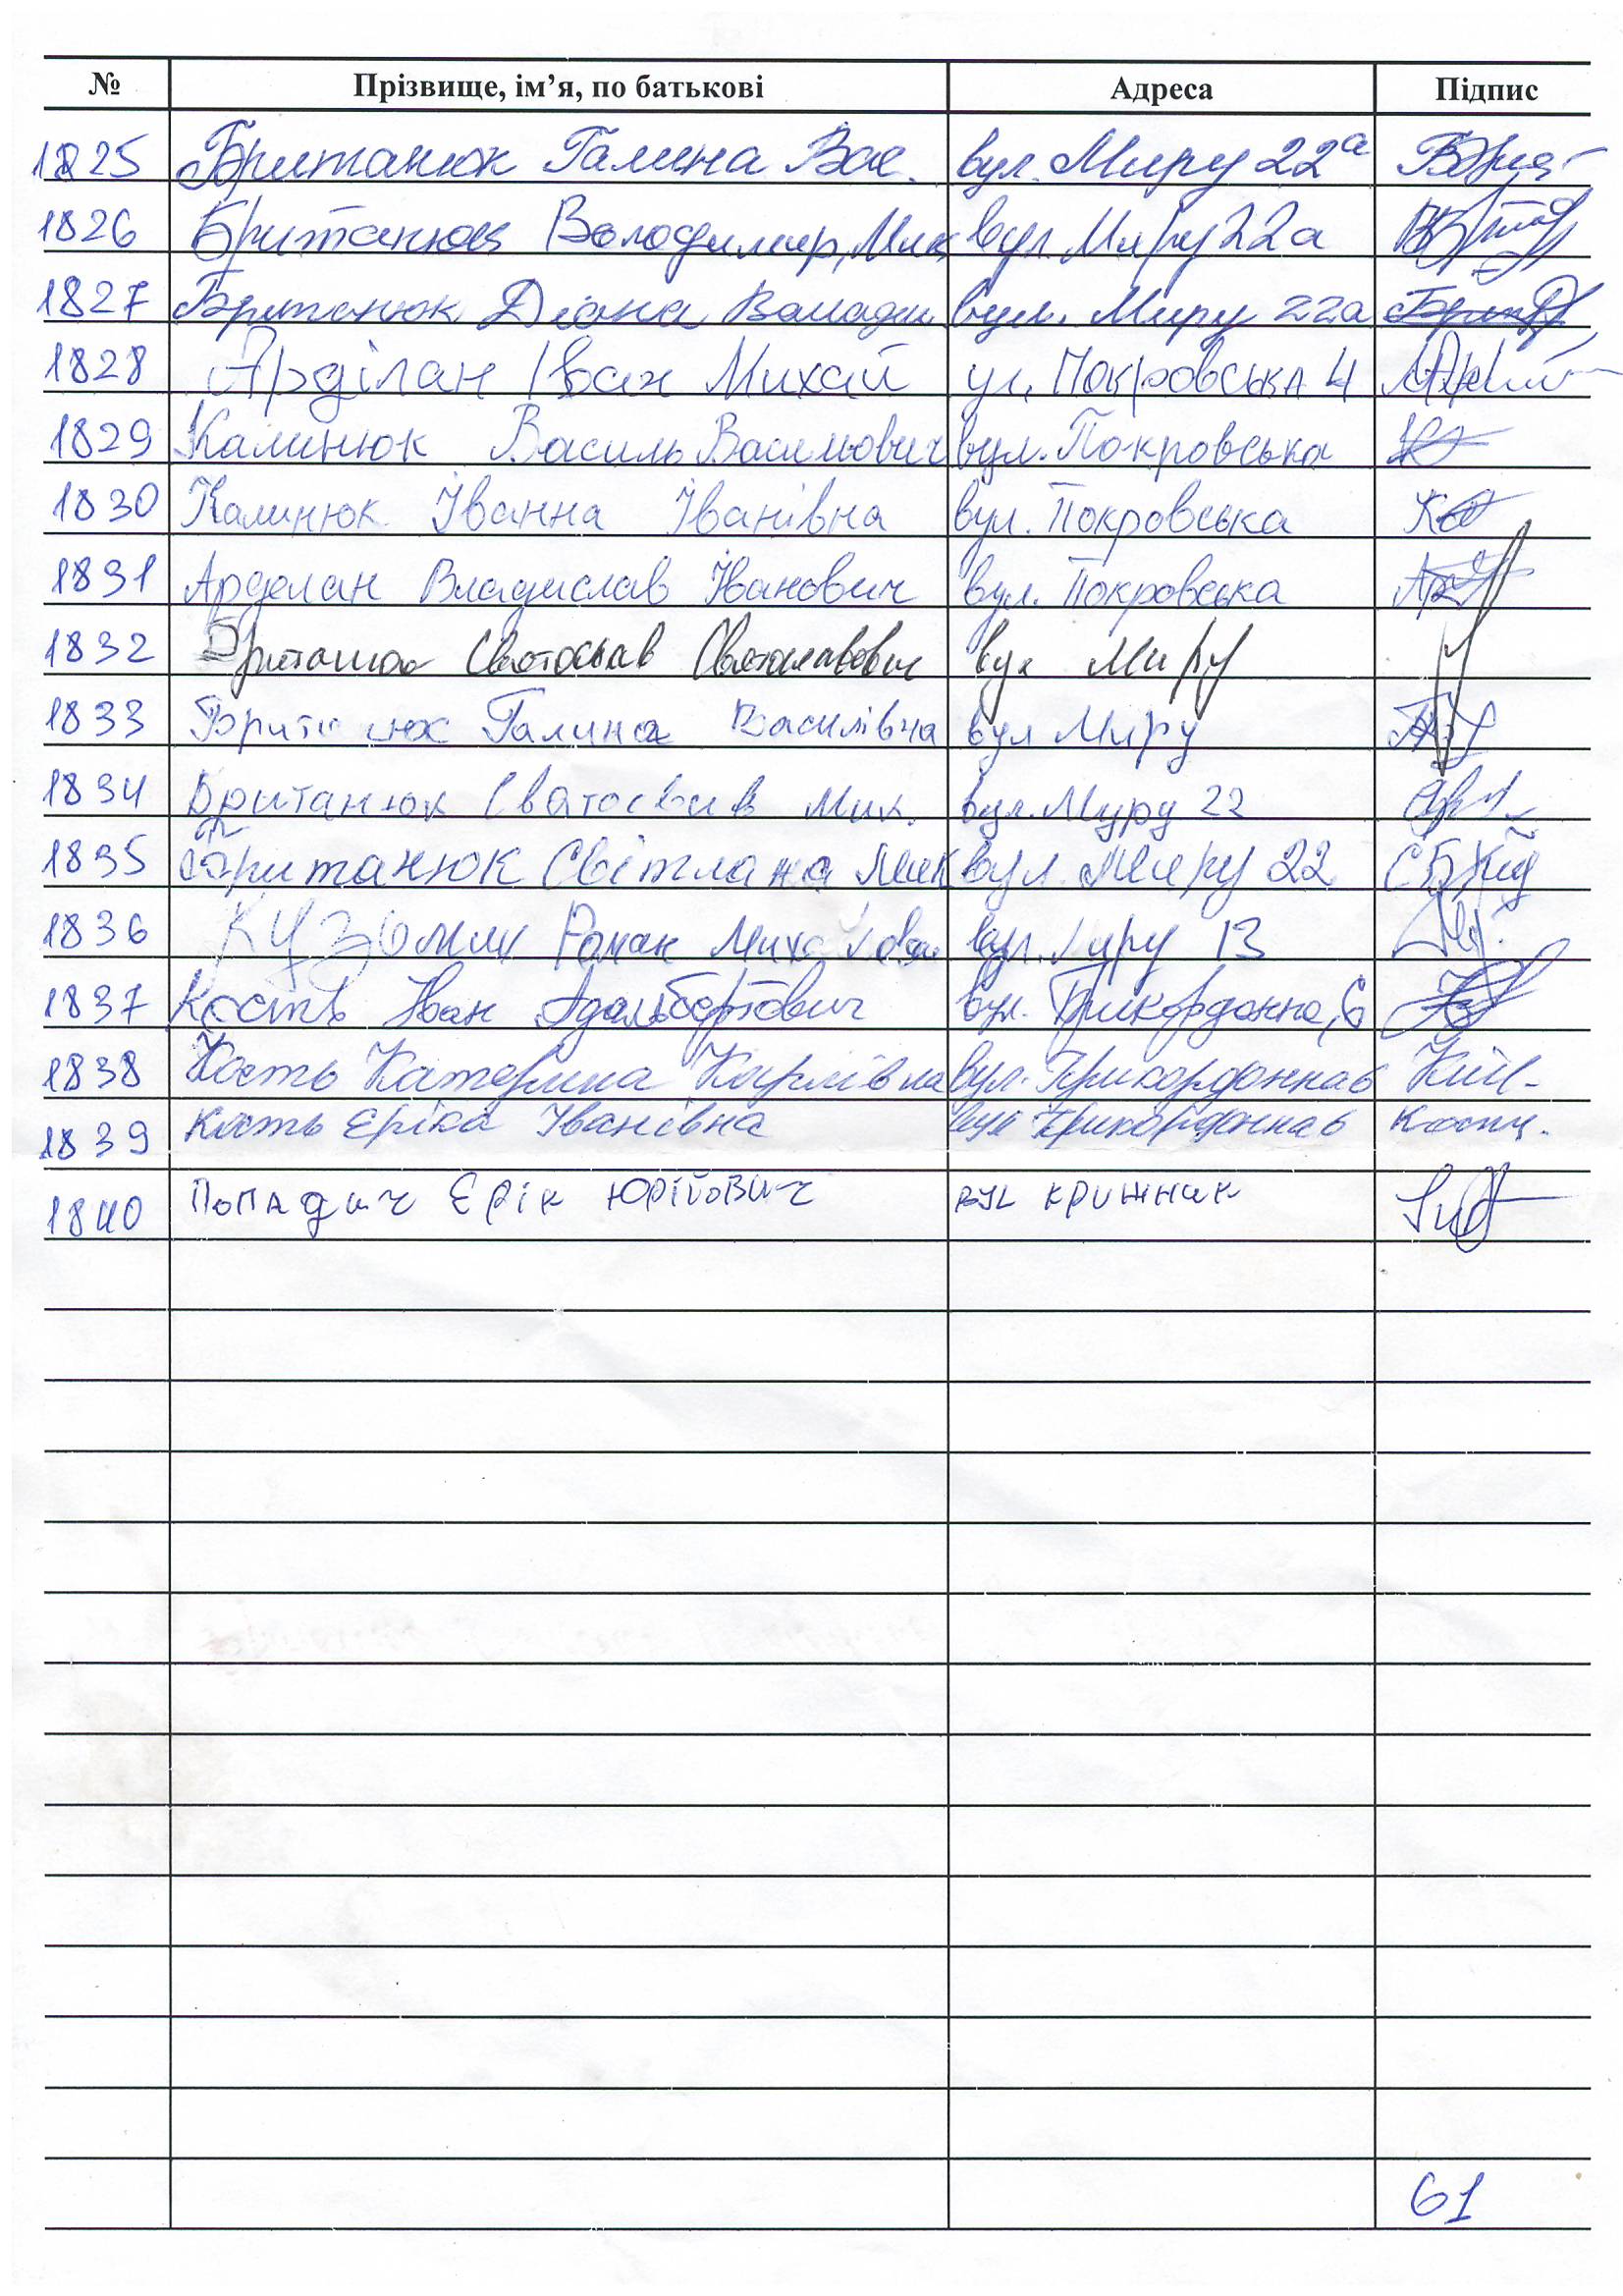 № Прізвище, ім’я, по батькові Адреса Підпис
1825 Британюк Галина Вас. вул. Миру 22а
1826 Британюк Володимир, Мик вул. Миру 22а
1827 Британюк Діана Володим. вул. Миру 22а
1828 Арділан Іван Михай ул, Покровська 4
1829 Калинюк Василь Васильович вул. Покровська
1830 Калинюк Іванна Іванівна вул. Покровська
1831 Арделан Владислав Іванович вул. Покровська
1832 Святослав Святославович вул Миру
1833 Галина Василівна вул Миру
1834 Британюк Мик. вул. Муру 22
1835 Британюк Світлана Мик вул. Миру 22
1836 Кузьмик Роман вул. Миру 13
1837 Кость Іван Адальбертович вул. Прикордонна, 6
1838 Кость Катерина Карлівна вул. Прикордонна 6
1839 Кость Еріка Іванівна вул Прикордонна 6 Кость.
1840 Попадич Ерік Юрійович
61